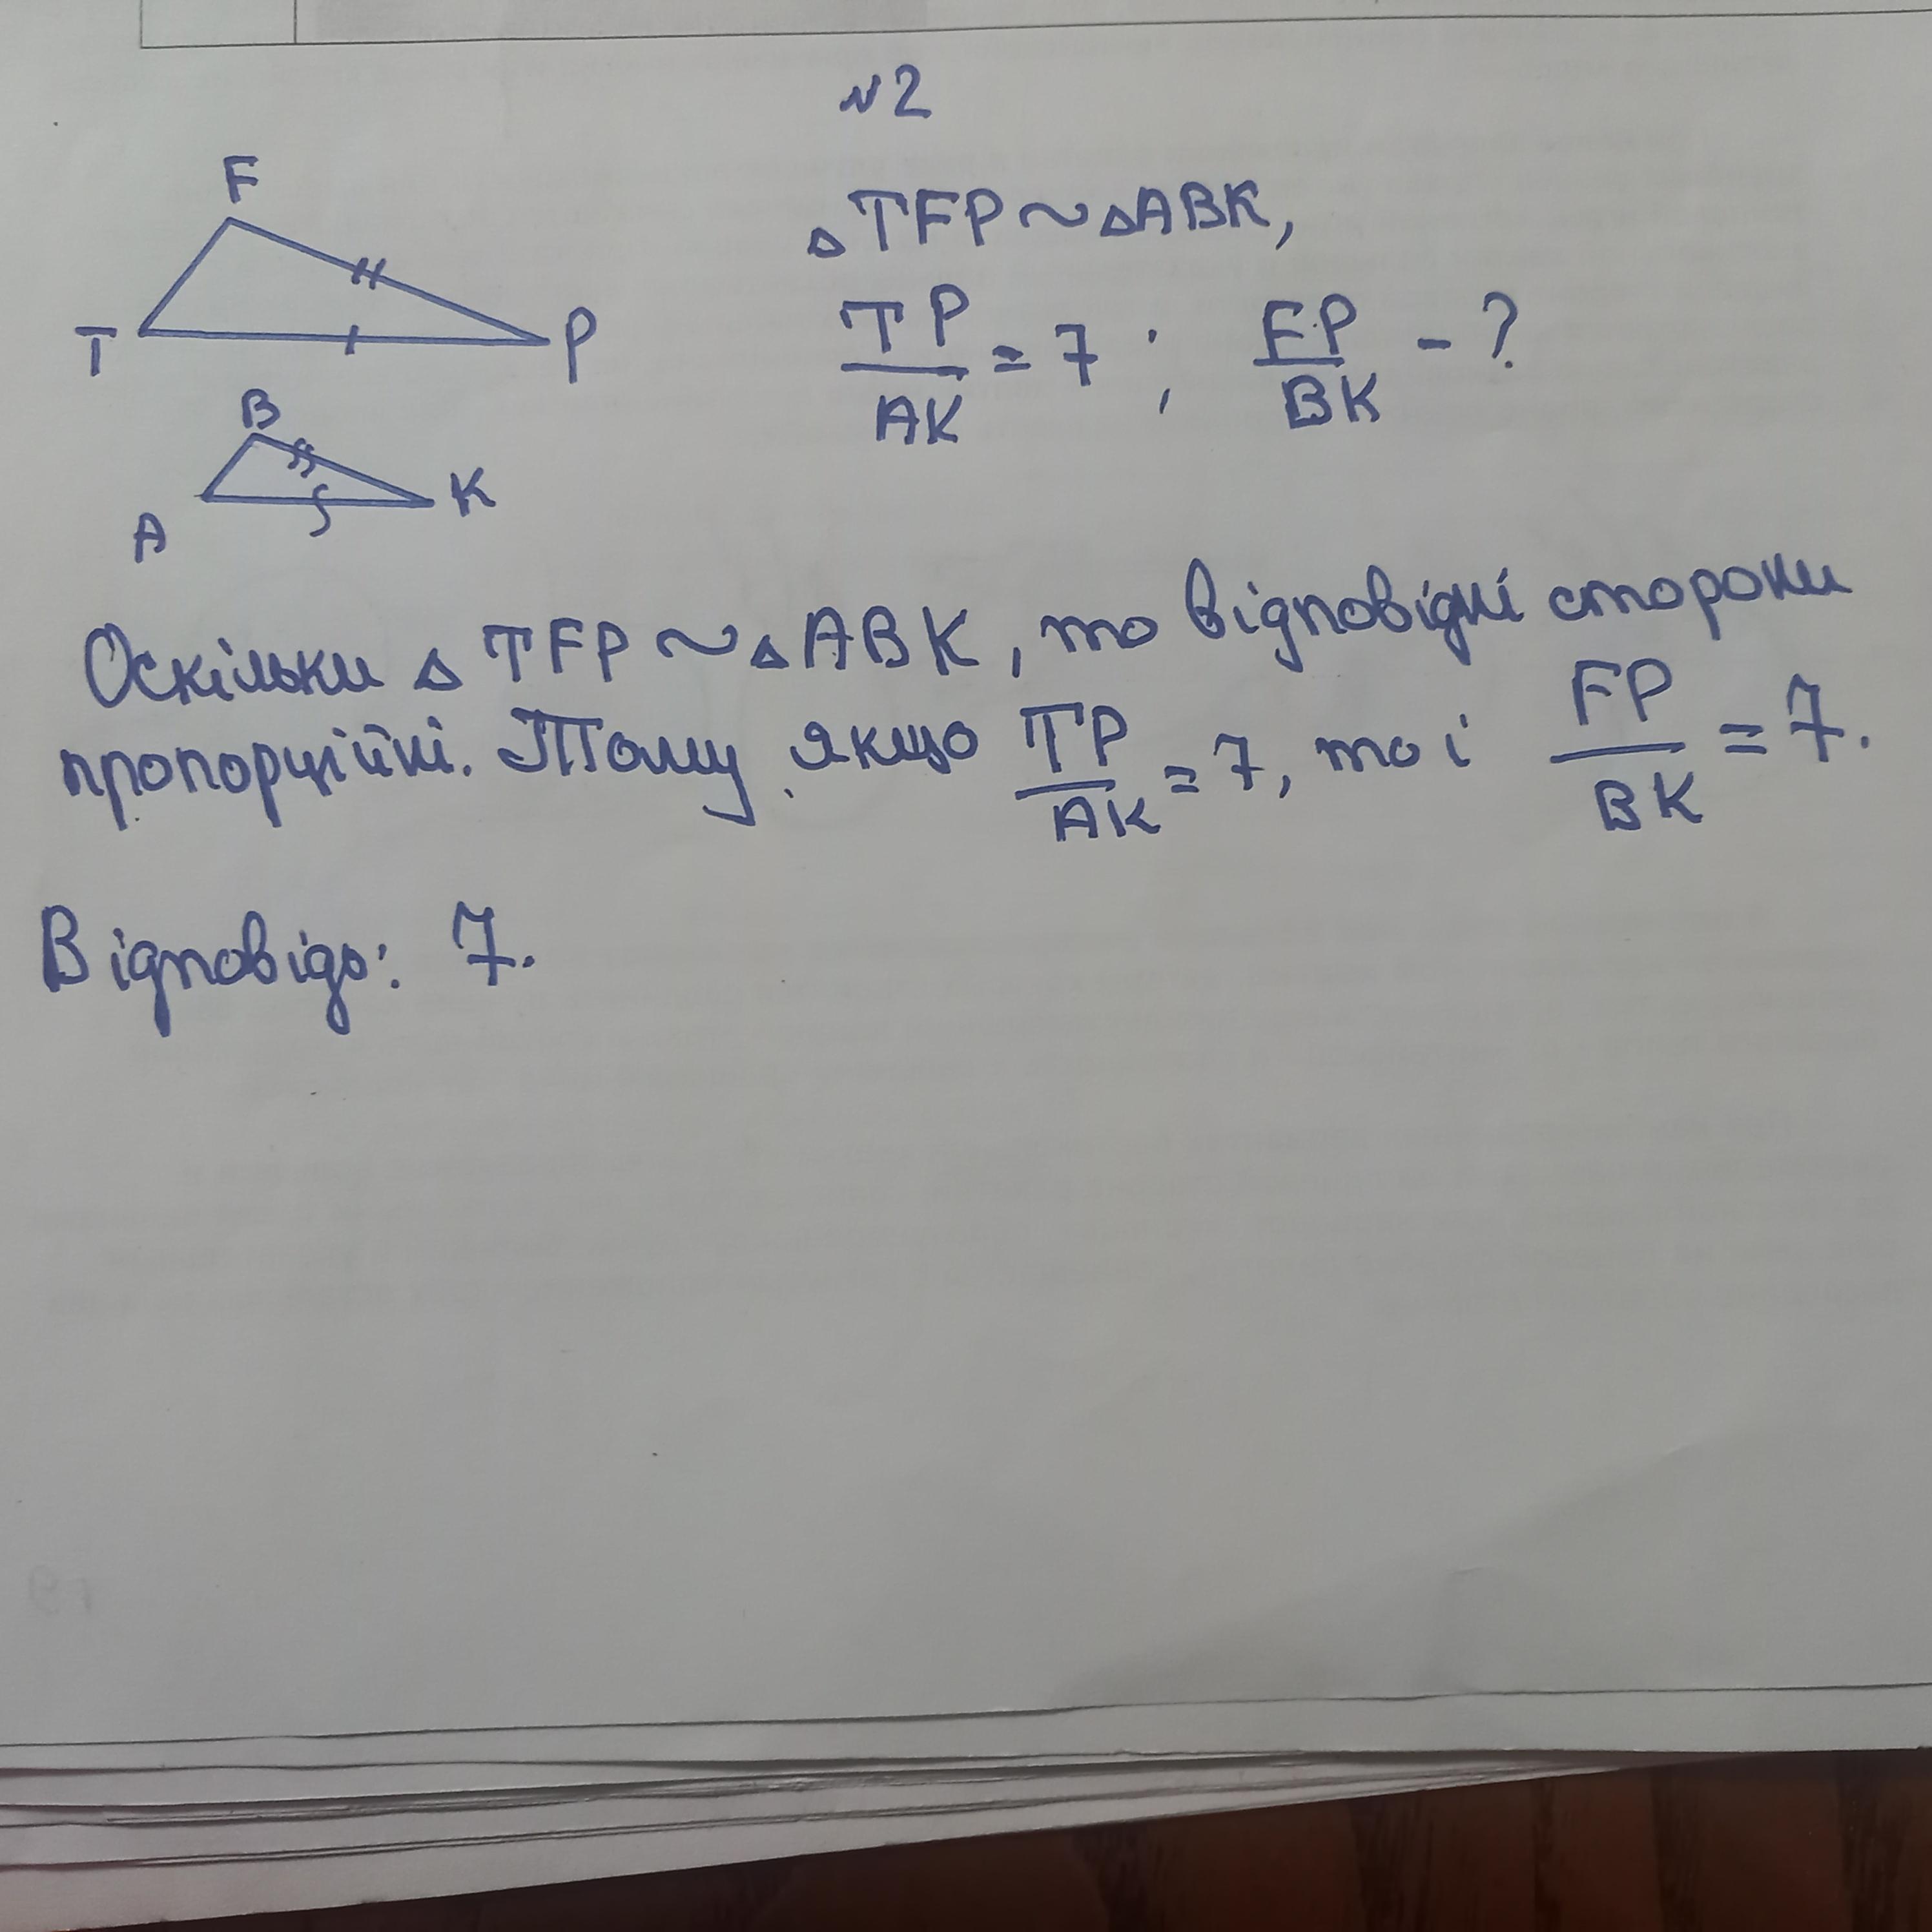 №2
F
T
P
B
A
K
△TFP ~ △ABK,
TP/AK = 7; FP/BK - ?
Оскільки △TFP ~ △ABK, то відповідні сторони
пропорційні. Тому якщо TP/AK = 7, то і FP/BK = 7.
Відповідь: 7.